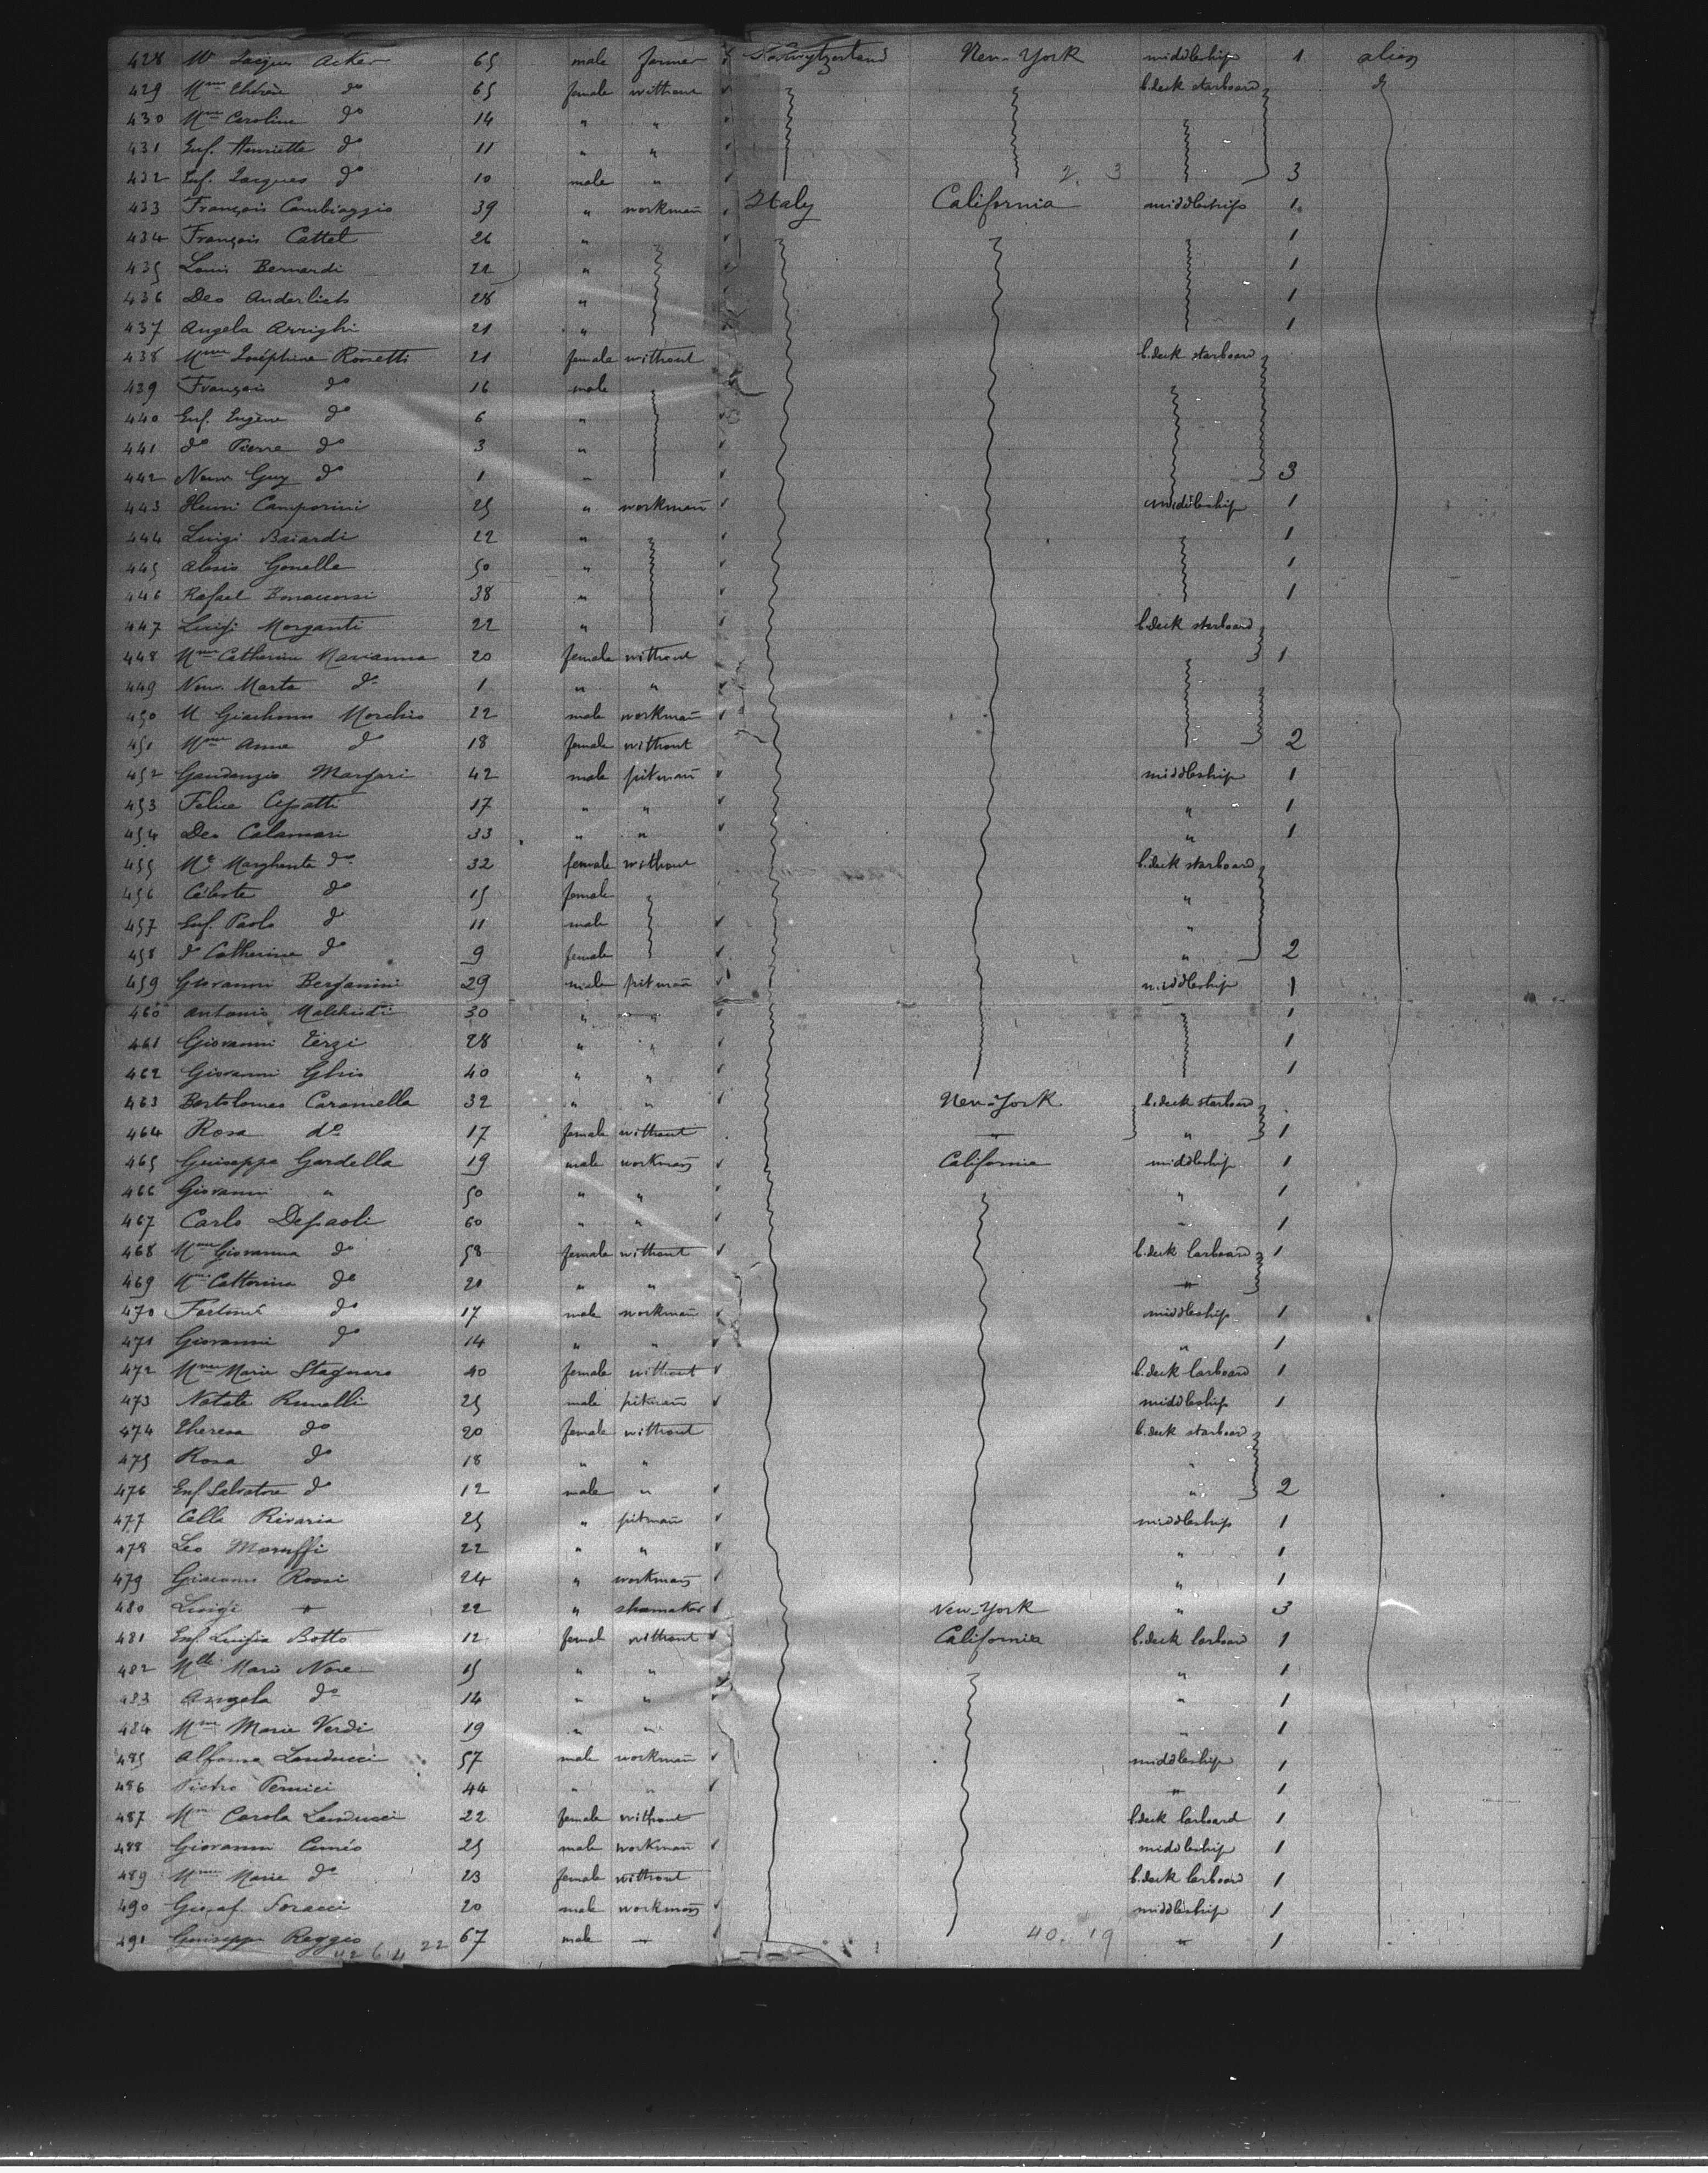 428 Mr Jacques Acker 65 male farmer Switzerland New-York middleship 1 alien
429 Mme Thérèse do 65 female without b.deck starboard do
430 Mme Caroline do 14 " "
431 Enf. Henriette do 11 " "
432 Enf. Jacques do 10 male " 2. 3 3
433 François Cambiaggio 39 " workman Italy California middleship 1
434 François Cattet 26 " 1
435 Louis Bernardi 22 " 1
436 Deo 28 " 1
437 Angela Arrighi 21 " 1
438 Mme Joséphine Rossetti 21 female without b.deck starboard
439 François do 16 male
440 Enf. Eugène do 6 "
441 do Pierre do 3 "
442 Nouv. Guy do 1 " 3
443 Henri Camporini 25 " workman middleship 1
444 Luigi Baiardi 22 " 1
445 Alexis Gonella 50 " 1
446 Rafael Bonaccorsi 38 " 1
447 Luigi Morganti 22 " b.deck starboard
448 Mme Catherine Marianna 20 female without 1
449 Nouv. Marta do 1 " "
450 M Morchio 22 male workman
451 Mme Anna do 18 female without 2
452 Gaudenzio Margari 42 male pitman middleship 1
453 Felice 17 " " " 1
454 Deo Calamari 33 " " " 1
455 Me Margherita do 32 female without b.deck starboard
456 Céleste do 15 female "
457 Enf. Paolo do 11 male "
458 do Catherine do 9 female " 2
459 Giovanni Bergamini 29 male pitman middleship 1
460 Antonio 30 " " 1
461 Giovanni Terzi 28 " " 1
462 Giovanni Ghio 40 " " 1
463 Bartolomeo Caramella 32 " " New-York b.deck starboard
464 Rosa do 17 female without " " 1
465 Guiseppe Gardella 19 male workman California middleship 1
466 Giovanni " 50 " " " 1
467 Carlo Depaoli 60 " " " 1
468 Mme Giovanna do 58 female without b.deck larboard 1
469 Mme Catterina do 20 " " "
470 do 17 male workman middleship 1
471 Giovanni do 14 " " " 1
472 Mme Marie Stagnaro 40 female without b.deck larboard 1
473 Natale 25 male pitman middleship 1
474 Theresa do 20 female without b.deck starboard
475 Rosa do 18 " " "
476 Enf. Salvatore do 12 male " " 2
477 Cella Rivaria 25 " pitman middleship 1
478 Leo Maruffi 22 " " " 1
479 Giacomo Rossi 24 " workman " 1
480 Luigi " 22 " shomaker New-York " 3
481 Enf. Luigia Botto 12 female without California b.deck larboard 1
482 Mlle Maria Nove 15 " " " 1
483 Angela do 14 " " " 1
484 Mme Marie Verdi 19 " " " 1
485 Alfonso Landucci 57 male workman middleship 1
486 Pietro 44 " " " 1
487 Mme Carola Landucci 22 female without b.deck larboard 1
488 Giovanni Cuneo 25 male workman middleship 1
489 Mme Marie do 23 female without b.deck larboard 1
490 20 male workman middleship 1
491 Guiseppe Reggio 67 male " 40. 19 " 1
42 6 4 22